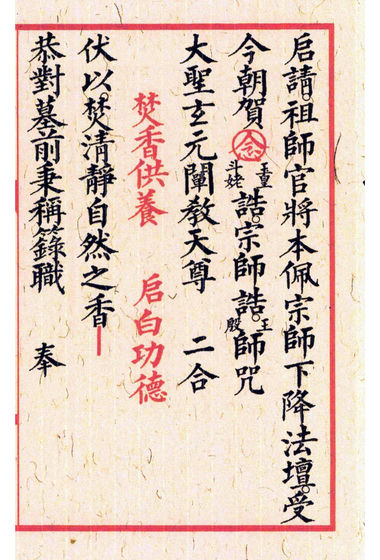 启請祖師官將本佩宗師下降法壇受
今朝賀念斗姥誥宗師誥王殷師咒
大聖玄元闡教天尊　二合
焚香供養　启白功德
伏以焚清靜自然之香
恭對墓前秉稱籙職　奉